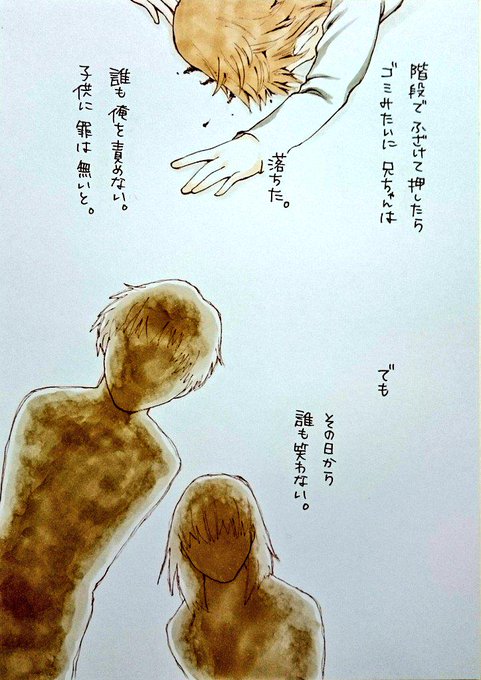 階段で ふざけて 押したら
ゴミみたいに 兄ちゃんは
落ちた。
誰も 俺を 責めない。
子供に 罪は 無いと。
でも
その日から
誰も笑わない。